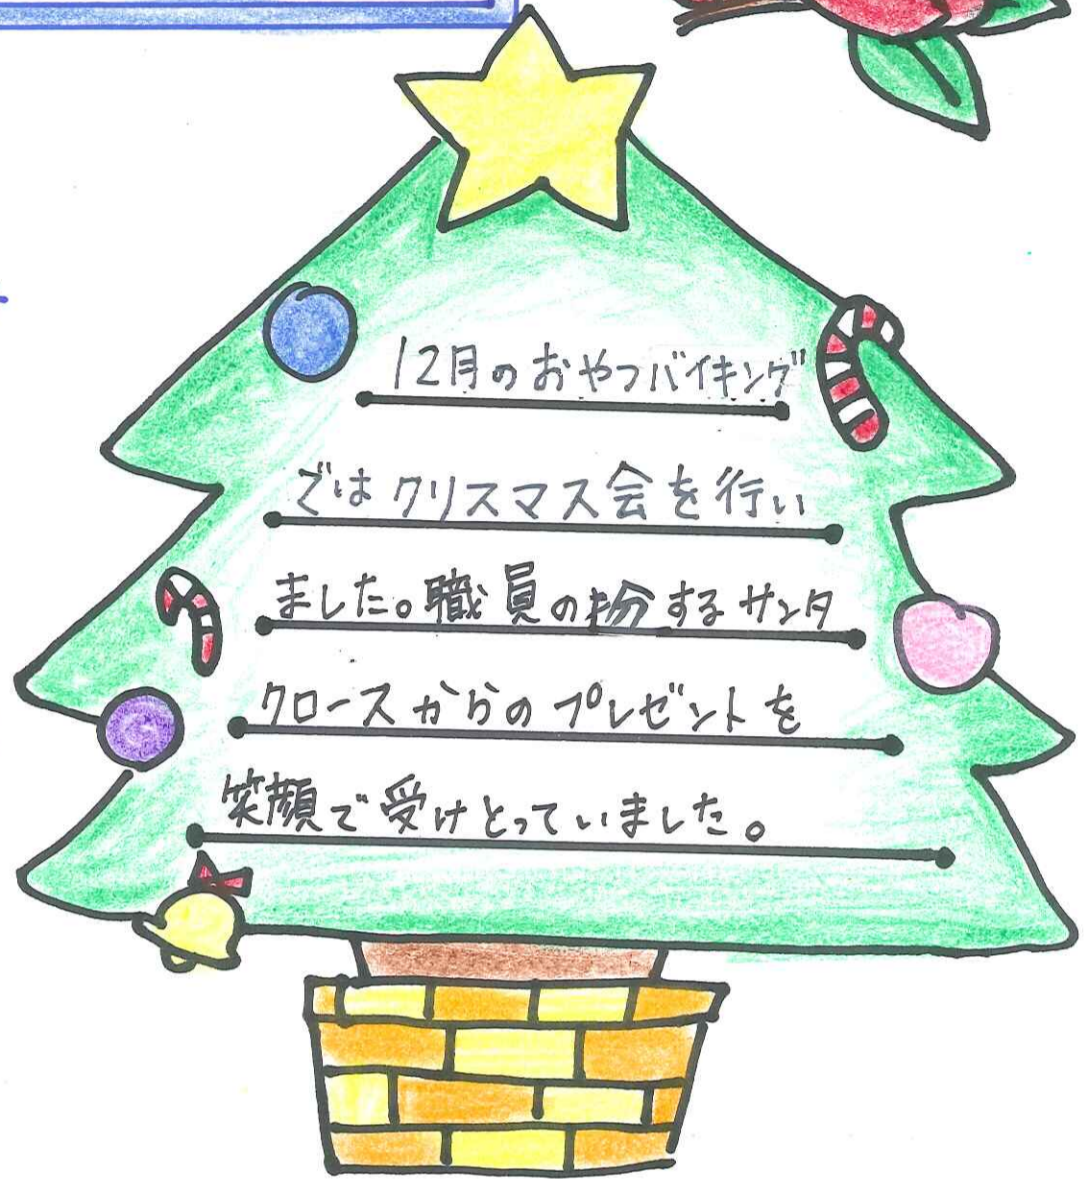 12月のおやつバイキング
ではクリスマス会を行い
ました。職員の扮するサンタ
クロースからのプレゼントを
笑顔で受けとっていました。